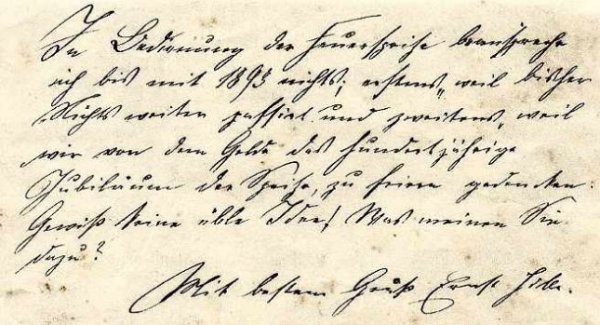 In Bedienung der Feuerspritze beanspruche
ich bis mit 1893 nichts; erstens, weil bisher
Nichts weiter passirt und zweitens, weil
wir von dem Gelde das hundertjährige
Jubiläum der Spritze, zu feiern gedenken.
Gewiß keine üble Idee! Was meinen Sie
dazu?
Mit bestem Gruß Ernst